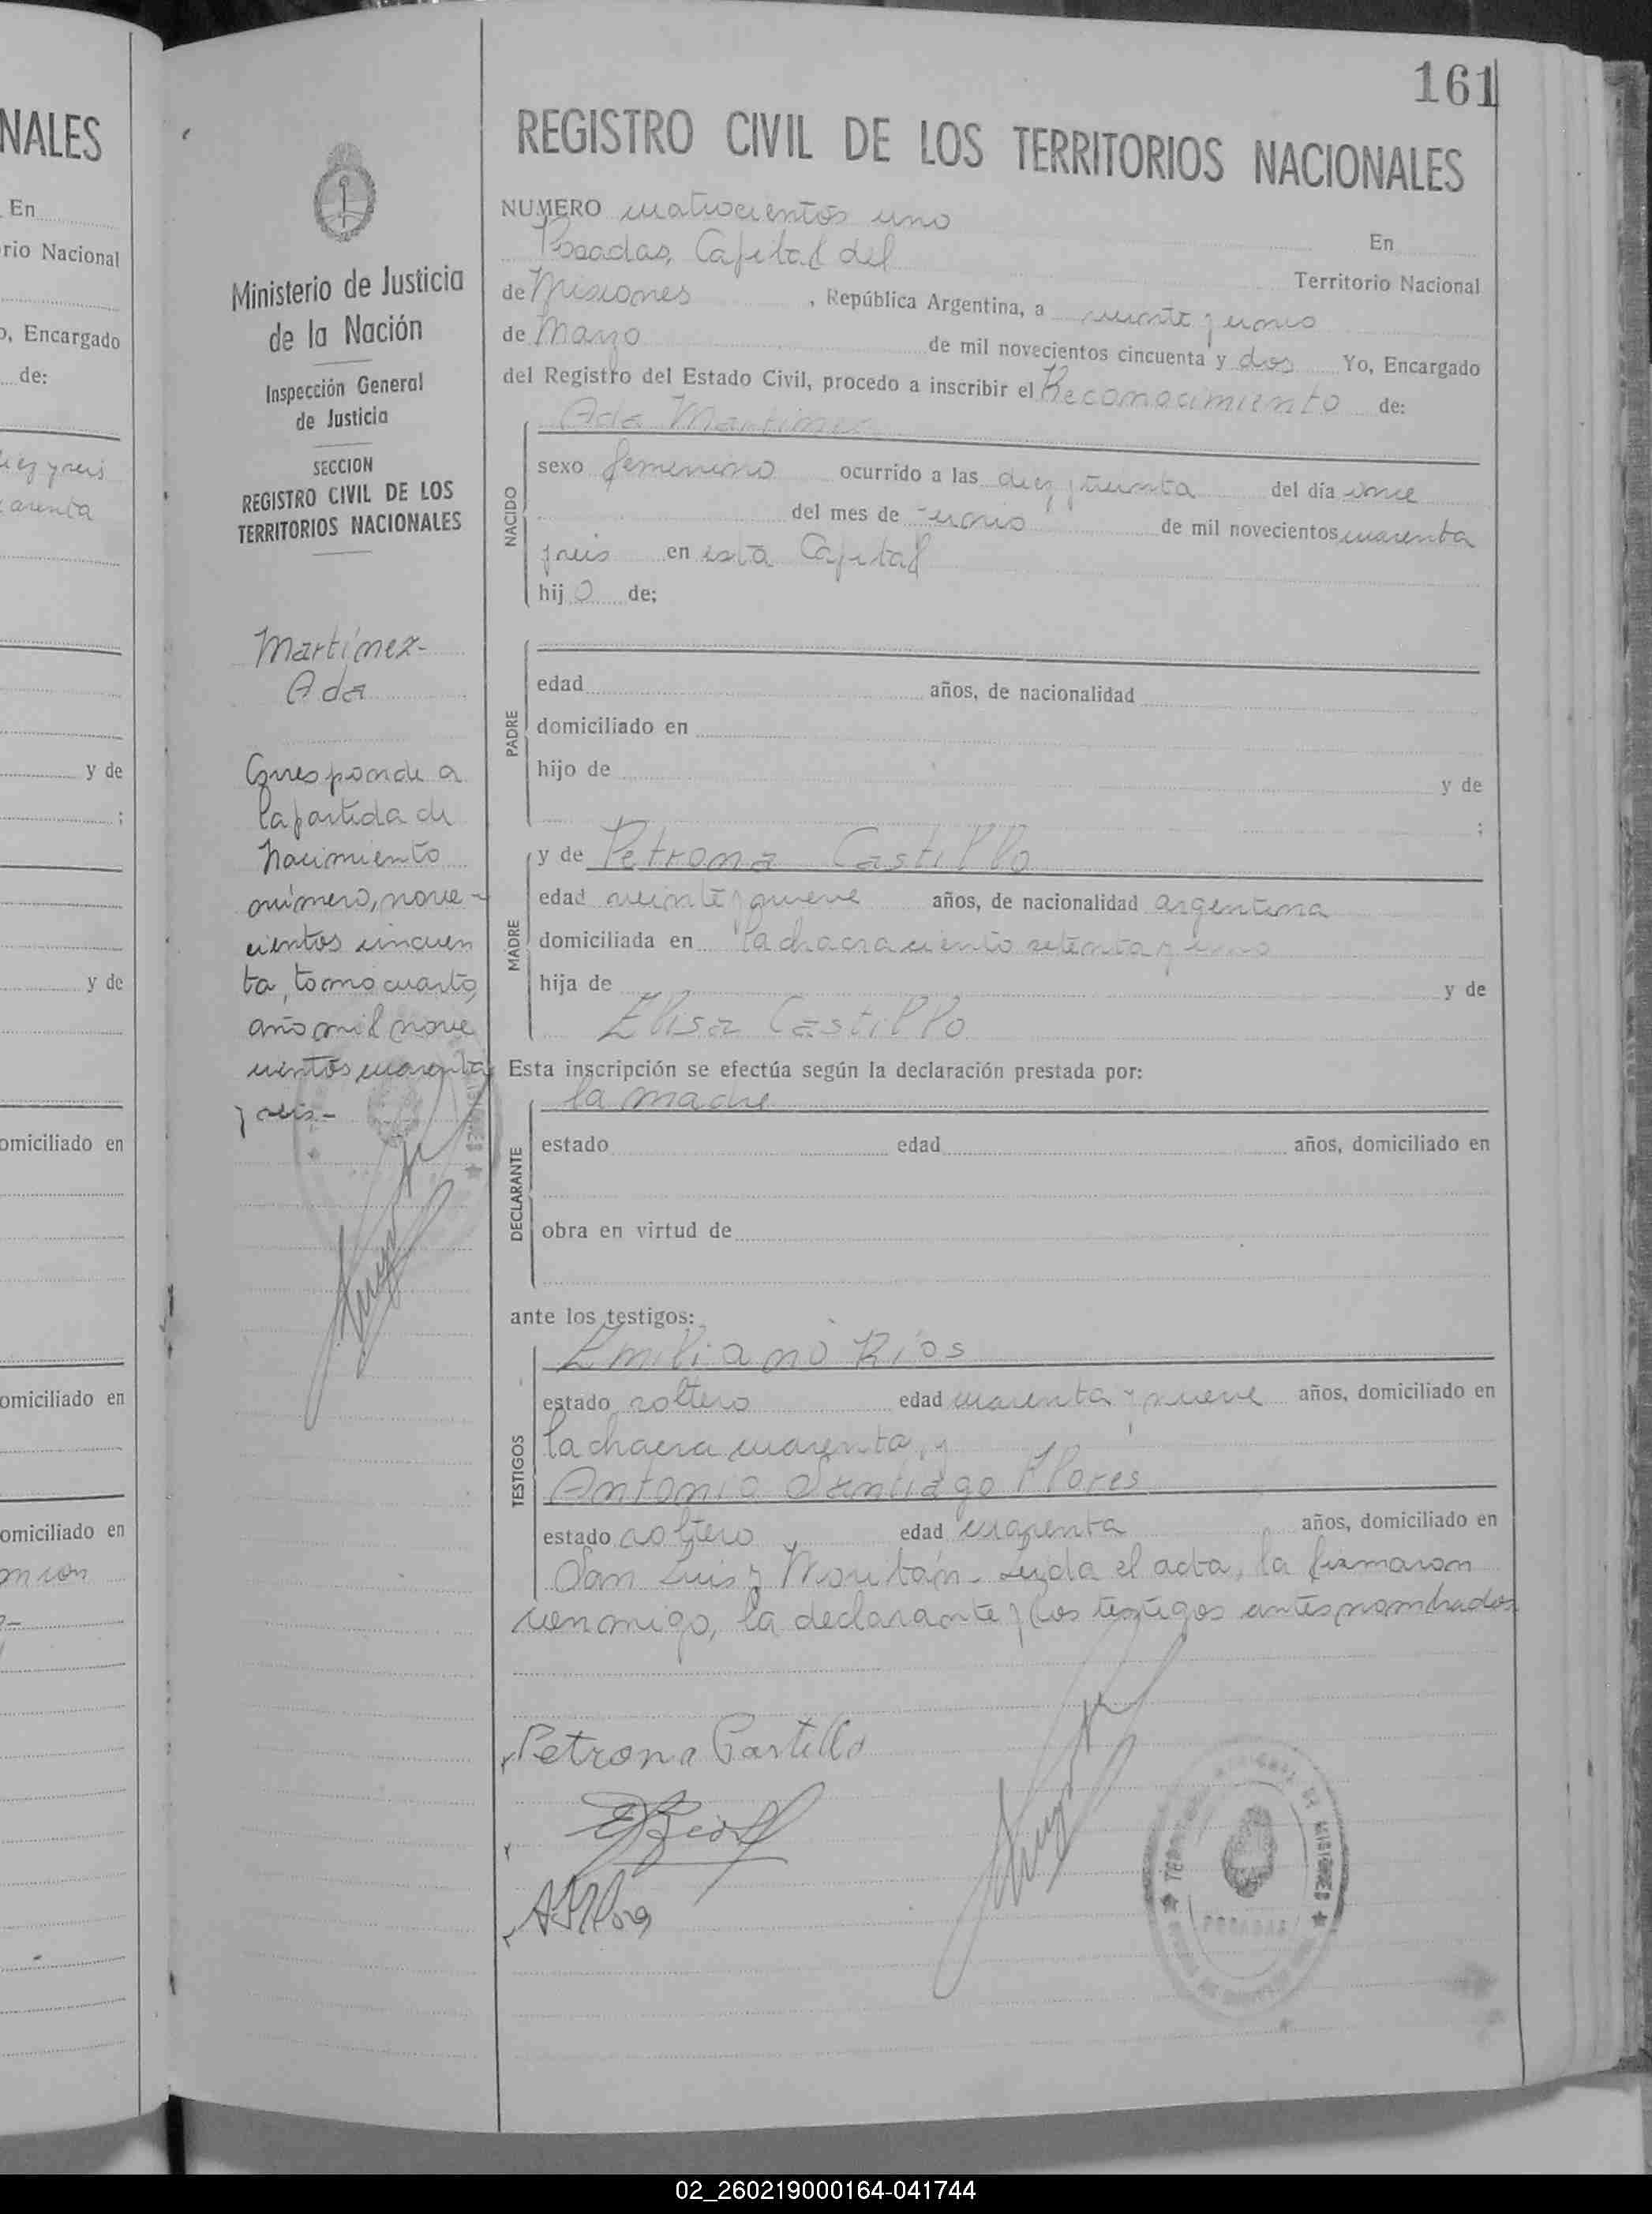 161
NALES
En
rio Nacional
o, Encargado
de:
diez y seis
arenta
y de
;
y de
omiciliado en
omiciliado en
omiciliado en
Ministerio de Justicia
de la Nación
Inspección General
de Justicia
SECCION
REGISTRO CIVIL DE LOS
TERRITORIOS NACIONALES
Martínez-
Ada
Corresponde a
la partida de
nacimiento
número, nove-
cientos cincuen
ta, tomo cuarto,
año mil nove
cientos cuarenta
y seis.-
REGISTRO CIVIL DE LOS TERRITORIOS NACIONALES
NUMERO cuatrocientos uno En
Posadas, Capital del Territorio Nacional
de Misiones , República Argentina, a veinte y uno
de Marzo de mil novecientos cincuenta y dos Yo, Encargado
del Registro del Estado Civil, procedo a inscribir el Reconocimiento de:
Ada Martinez
NACIDO
sexo femenino ocurrido a las diez y treinta del día once
del mes de Junio de mil novecientos cuarenta
y seis en esta Capital
hij o de:
PADRE
edad años, de nacionalidad
domiciliado en
hijo de y de
;
MADRE
y de Petrona Castillo
edad veinte y nueve años, de nacionalidad argentina
domiciliada en la chacra ciento setenta y uno
hija de y de
Elisa Castillo
Esta inscripción se efectúa según la declaración prestada por:
la madre
DECLARANTE
estado edad años, domiciliado en
obra en virtud de
ante los testigos:
TESTIGOS
Emiliano Ríos
estado soltero edad cuarenta y nueve años, domiciliado en
la chacra cuarenta, y
Antonio Santiago Flores
estado soltero edad cuarenta años, domiciliado en
San Luis y Roulbán- Leyda el acta, la firmaron
conmigo, la declarante y los testigos antes nombrados
Petrona Castillo
POSADAS
MISIONES
02_260219000164-041744